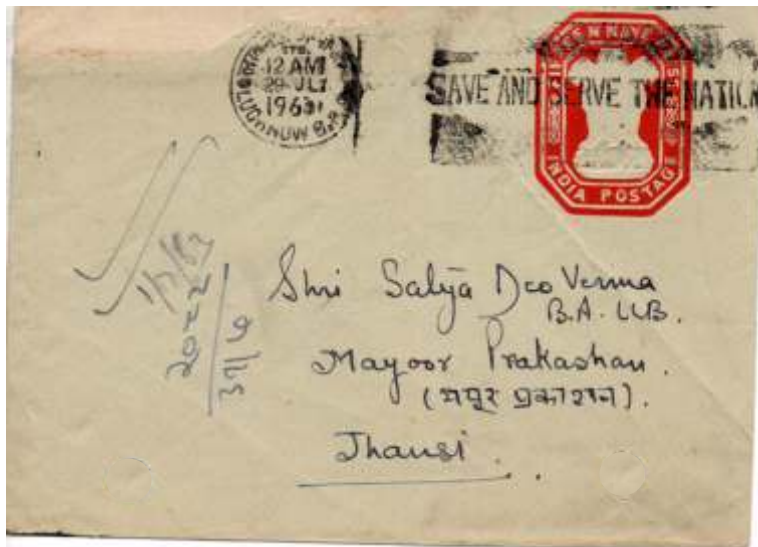 12 AM
29 JLY
1963
SAVE AND SERVE THE NATION
INDIA POSTAGE
Shri Satya Deo Verma
B.A. LLB.
Mayoor Prakashan.
(मयूर प्रकाशन).
Jhansi.